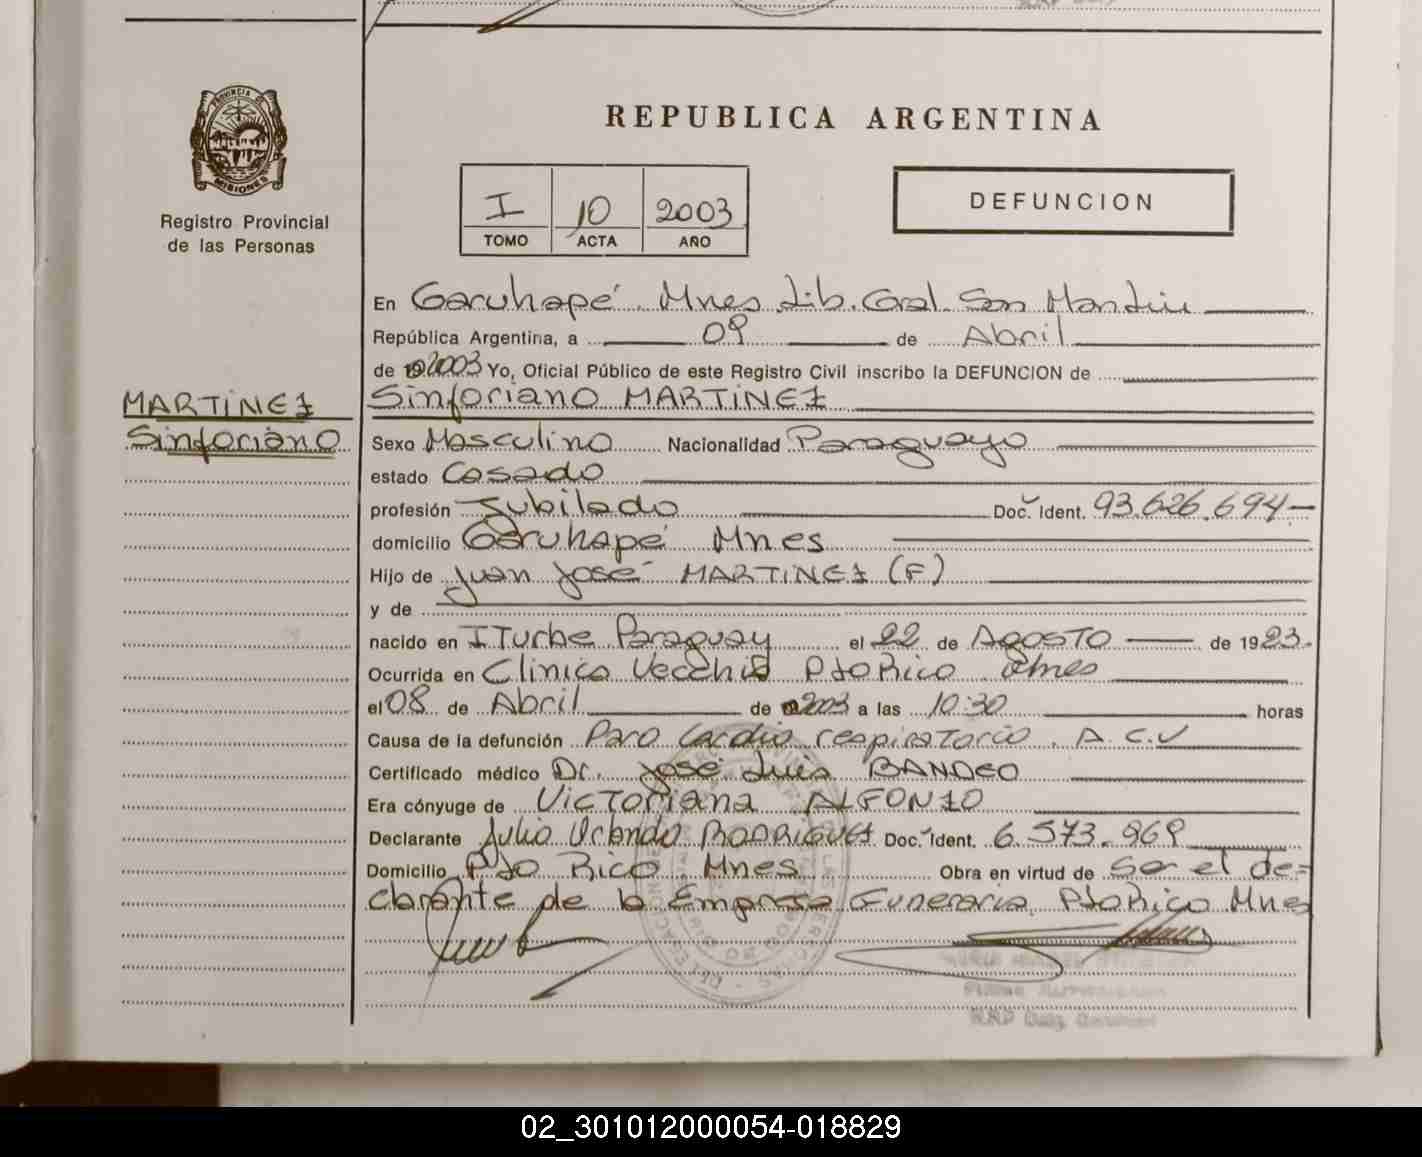 PROVINCIA DE
MISIONES
Registro Provincial
de las Personas
REPUBLICA ARGENTINA
I 10 2003
TOMO ACTA AÑO
DEFUNCION
En Garuhapé Mnes Lib. Gral. San Martín
República Argentina, a 09 de Abril
de 2003 Yo, Oficial Público de este Registro Civil inscribo la DEFUNCION de
MARTINEZ
Sinforiano MARTINEZ
Sinforiano
Sexo Masculino Nacionalidad Paraguayo
estado Casado
profesión Jubilado Doc. Ident. 93.626.694
domicilio Garuhapé Mnes
Hijo de Juan José MARTINEZ (F)
y de
nacido en ITurbe Paraguay el 22 de AGOSTO de 1923.
Ocurrida en Clínica Vecchia Pto Rico Mnes
el 08 de Abril de 2003 a las 10:30 horas
Causa de la defunción Paro Cardio respiratorio. A.C.V
Certificado médico Dr. José Luis BANDEO
Era cónyuge de Victoriana ALFONZO
Declarante Julio Orlando RODRIGUEZ Doc. Ident. 6.573.969
Domicilio Pto Rico Mnes Obra en virtud de Ser el de=
clarante de la Empresa Funeraria Pto Rico Mnes
02_301012000054-018829